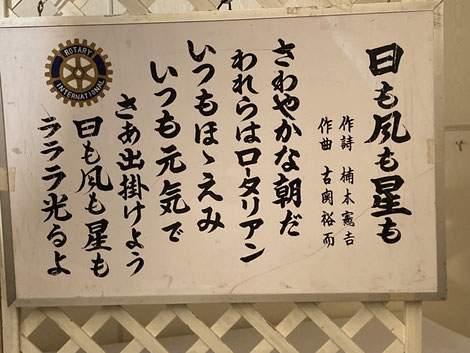 日も風も星も
作詩 楠本憲吉
作曲 古関裕而
さわやかな朝だ
われらはロータリアン
いつもほゝえみ
いつも元気で
さあ出掛けよう
日も風も星も
ラララ光るよ
ROTARY
INTERNATIONAL